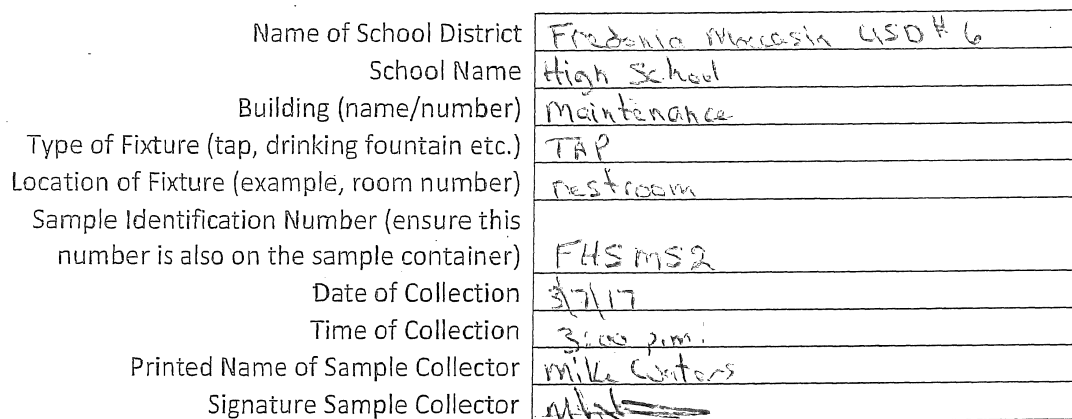 Name of School District Fredonia Moccasin USD # 6
School Name High School
Building (name/number) Maintenance
Type of Fixture (tap, drinking fountain etc.) TAP
Location of Fixture (example, room number) restroom
Sample Identification Number (ensure this
number is also on the sample container) FHSMS2
Date of Collection 3/7/17
Time of Collection 3:00 p.m.
Printed Name of Sample Collector Mike
Signature Sample Collector